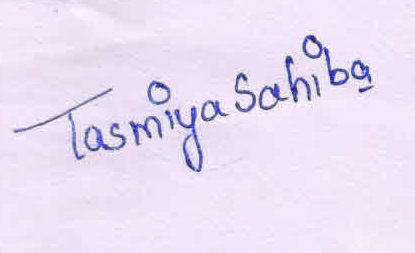 Tasmiya Sahiba